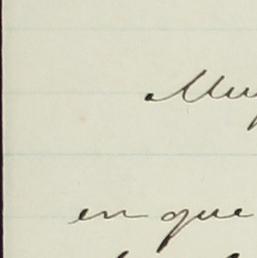 Muy
en que